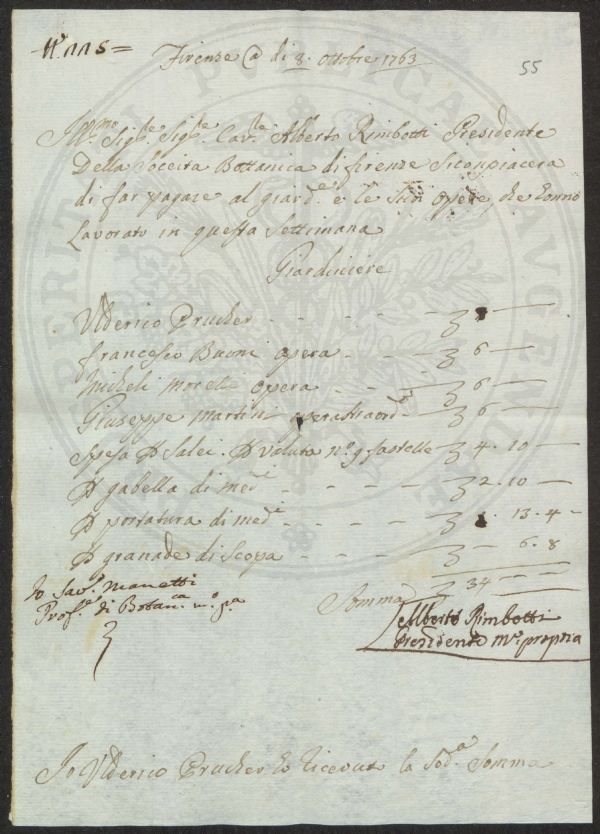 N.º 115 =
Firenze @ di 8. Ottobre 1763
55
Ill.mo Sig.re Sig.re Cav.re Alberto Rimbotti Presidente
Della Socceita Bottanica di firenze Siconpiacera
di far pagare al giard.e e le Sue opere che honno
Lavorato in questa Settimana
Giardiniere
Ulderico Prucher - - - - 3
francesco Buoni opera - - - 3 6 —
Micheli Moretti opera - - - 3 6 —
Giuseppe Martini opera straord.a 3 6 —
Spesa Salci valuta n.º 9 fastelle 3 4. 10 —
gabella di med.i - - - - 3 2. 10 —
portatura di med.i - - - - 3 13. 4 -
granade di Scopa - - - - 3 — 6. 8
Somma 3 34 — —
Io Sav.o Manetti
Prof.e di Botan.ca m.o p.a
Alberto Rimbotti
Presidente m.o propria
Io Ulderico Prucher ho Riceuto la Sod.a Somma
PERITIAE PUBLICAE AUGENDAE